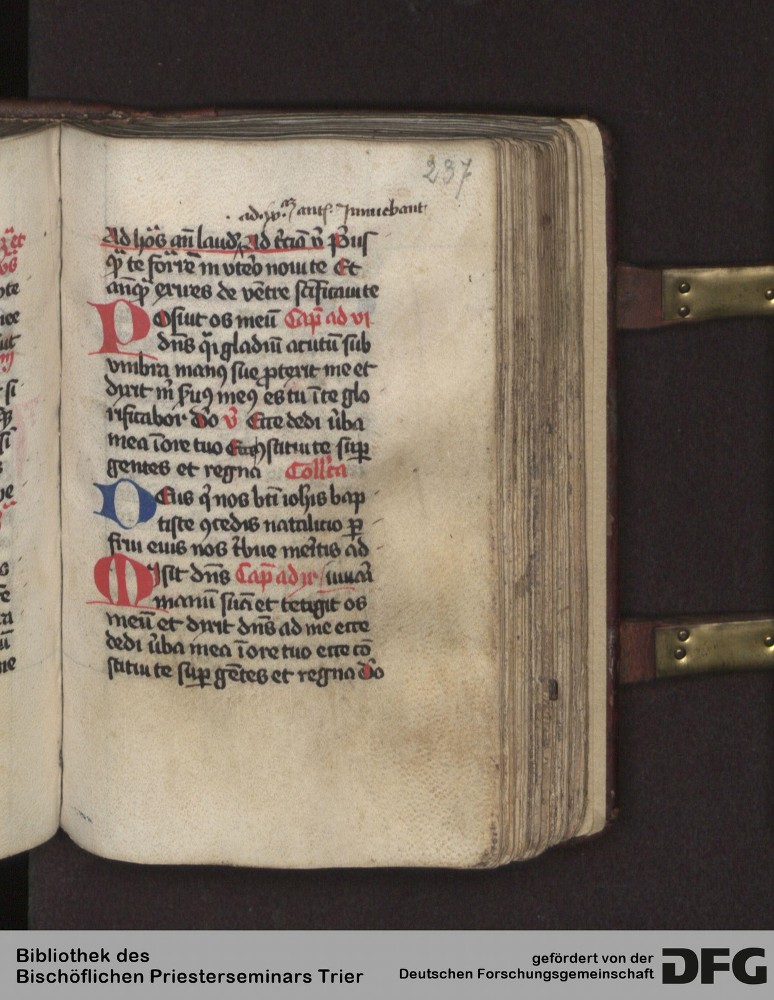 237
ad . xpm. ants. Innuebant
Ad hōs añ laud̄ Ad t̄ciā v̄ P̄us
qȝ te forrē in vtēo noui te Et
anq̄ exires de vētre sc̄ificaui te
Posiut os meū Cap̄ ad vi
dn̄s q̄i gladiū acutū sub
vmbra man9 sue ꝓterit me et
dixit m̄ s̄u9 me9 es tu ī te glo
rificabor dō v̄ Ecce dedi v̄ba
mea ī ore tuo Ecce ꝯstitui te sup̄
gentes et regna Coll̄ta
Deus q̄ nos bt̄i ioh̄is bap
tiste ꝯcedis natalicio ꝑ
frui eius nos t̄bue mer̄tis ad
Misit dn̄s Cap̄ ad ix
manū suā et tetigit os
meū et dixit dn̄s ad me ecce
dedi v̄ba mea ī ore tuo ecce cō
stitui te sup̄ gētes et regna dō
Bibliothek des
Bischöflichen Priesterseminars Trier
gefördert von der
Deutschen Forschungsgemeinschaft
DFG